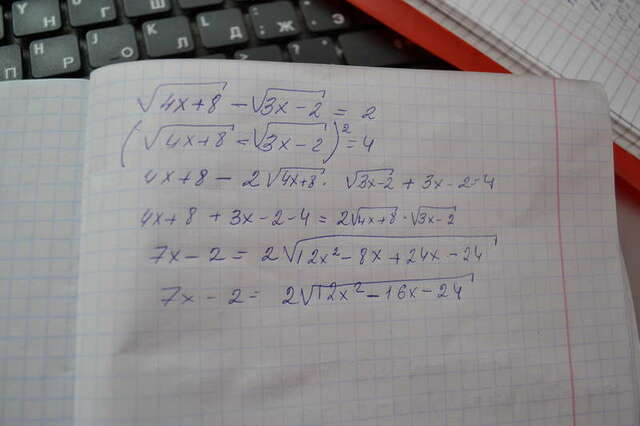 Y Н Г
П Р О К Л Д Ж Э
√4x+8 − √3x−2 = 2
(√4x+8 − √3x−2)² = 4
4x+8 − 2√4x+8 · √3x−2 + 3x−2=4
4x+8 + 3x−2−4 = 2√4x+8 · √3x−2
7x−2 = 2√12x²−8x+24x−24
7x−2 = 2√12x²−16x−24